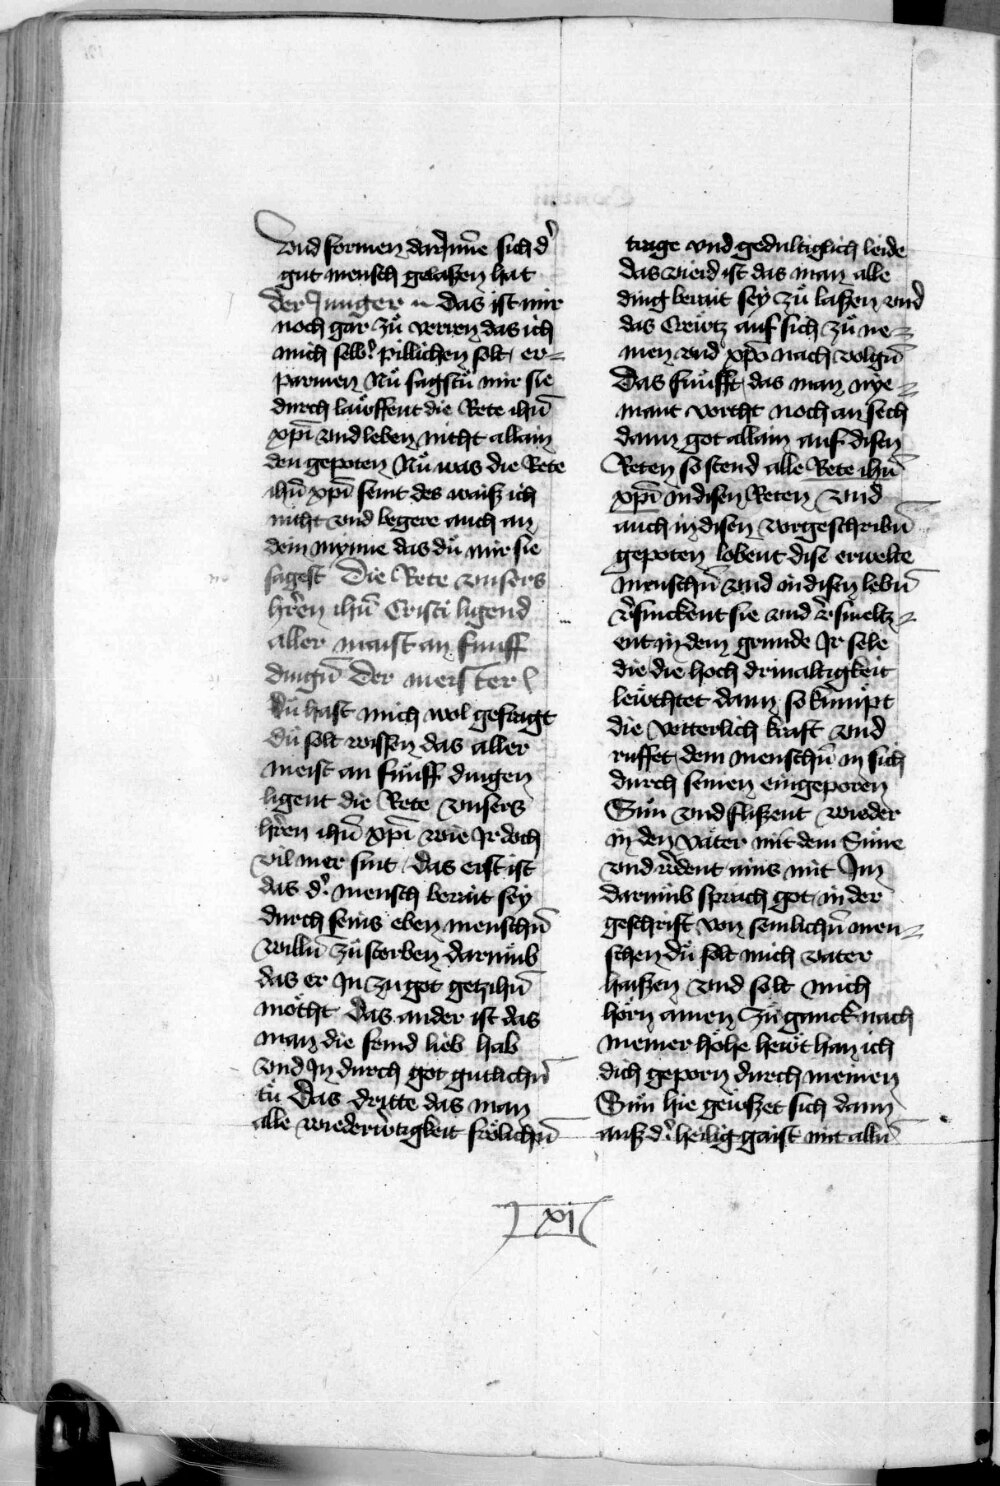 vnd formen darjnne sich dˀ
gut mensch gelaſzen hat
der Junger ~ das ist mir
noch gar zuͦ verren das ich
mich selbˀ pillichen solt er⸗
parmen Nuͦ sagstu mir sie
durch lauffent die Rete ihū
xp̄i vnd leben nicht allain
den gepoten Nuͦ was die Rete
ihū xp̄i seint des waiſz ich
nicht vnd begere auch an
dein mynne das duͦ mir sie
sagest Die Rete vnsers
hr̄en ihū Cristi ligend
aller maist an funff
dingn̄ Der meister
Duͦ hast mich wol gefragt
duͦ solt wissen das aller
meist an fuͤnff dingen
ligent die Rete vnsers
hr̄en ihū xp̄i wie Jr doch
vil mer sint das erst ist
das dˀ mensch berait sey
durch seins eben menschn̄
willn̄ zuͦ sterben darumb
das er Jn zu got getzihn̄
moͤcht Das ander ist das
man die feind lieb hab
vnd Jn durch got gutlichn̄
tuͦ Das dritte das man
alle wiederwͤrtigkeit froͤlichn̄
trage vnd gedultiglich leide
das vierd ist das man alle
ding berait sey zuͦ laſzen vnd
das Creuͤtz auf sich zuͦ ne⸗
men vnd xp̄o nach volgn̄
Das fuͤnfft das man nye⸗
mant vorcht noch an sech
dann got allain auf disen
Reten so stend alle Rete ihū
xp̄i in disen Reten vnd
auch in disen vorgeschribn̄
gepoten lobent dise erwelte
menschn̄ vnd in disen lebn̄
v̄sinckent sie vnd v̄smeltz⸗
ent in dem grunde Jr sele
die die hoch driualtigkeit
leuͤchtet dann so kumpt
die veterlich kraft vnd
ruffet dem menschn̄ in sich
durch seinen eingeporen
Sun vnd flieſzent wieder
in den vater mit dem Sune
vnd w̄dent ains mit Jm
darumb sprach got in der
geschrift von semlichn̄ men⸗
schen duͦ solt mich vater
haiſzen vnd solt mich
hoͤrn amen zuͦ ganck nach
meiner hoͤhe heuͤt han ich
dich geporn durch meinen
Sun hie geuͤſzet sich dann
auſz dˀ heilig gaist mit alln̄
xi